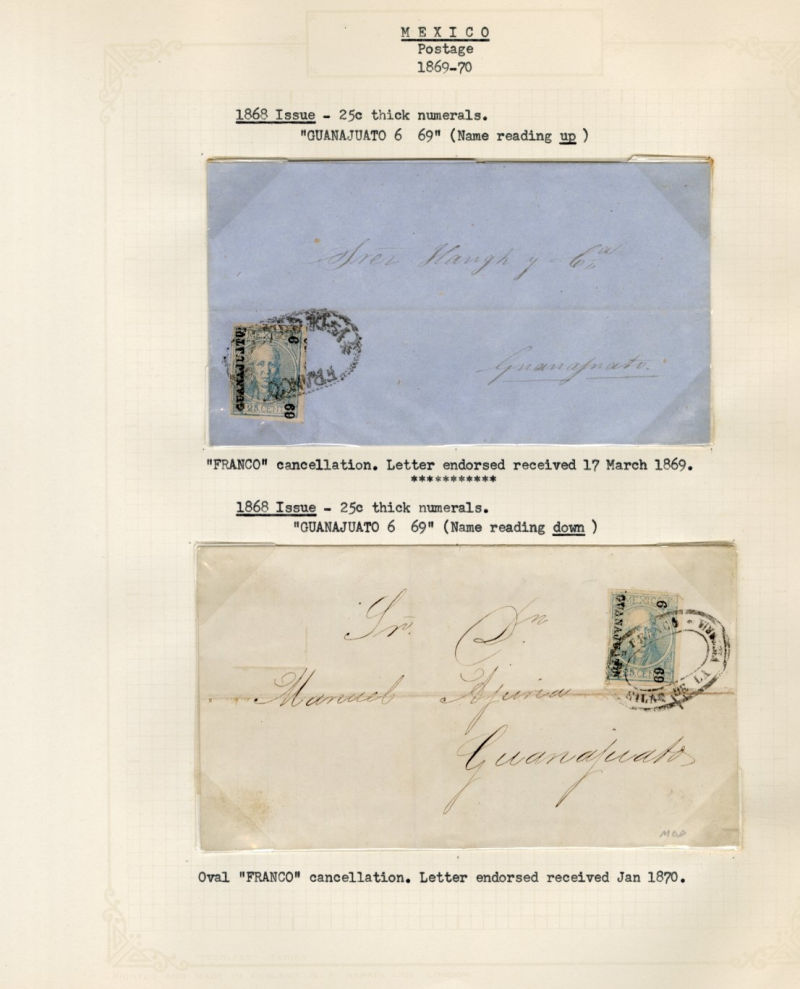 MEXICO
Postage
1869-70
1868 Issue - 25c thick numerals.
"GUANAJUATO 6 69" (Name reading up )
Sres Haugh y Cª
GUANAJUATO
6
69
FRANCO
Guanajuato.
"FRANCO" cancellation. Letter endorsed received 17 March 1869.
***********
1868 Issue - 25c thick numerals.
"GUANAJUATO 6 69" (Name reading down )
Sr. Dn
GUANAJUATO
MEXICO
6
69
FRANCO
DE LA
Manuel Ajuria
Guanajuato
Oval "FRANCO" cancellation. Letter endorsed received Jan 1870.